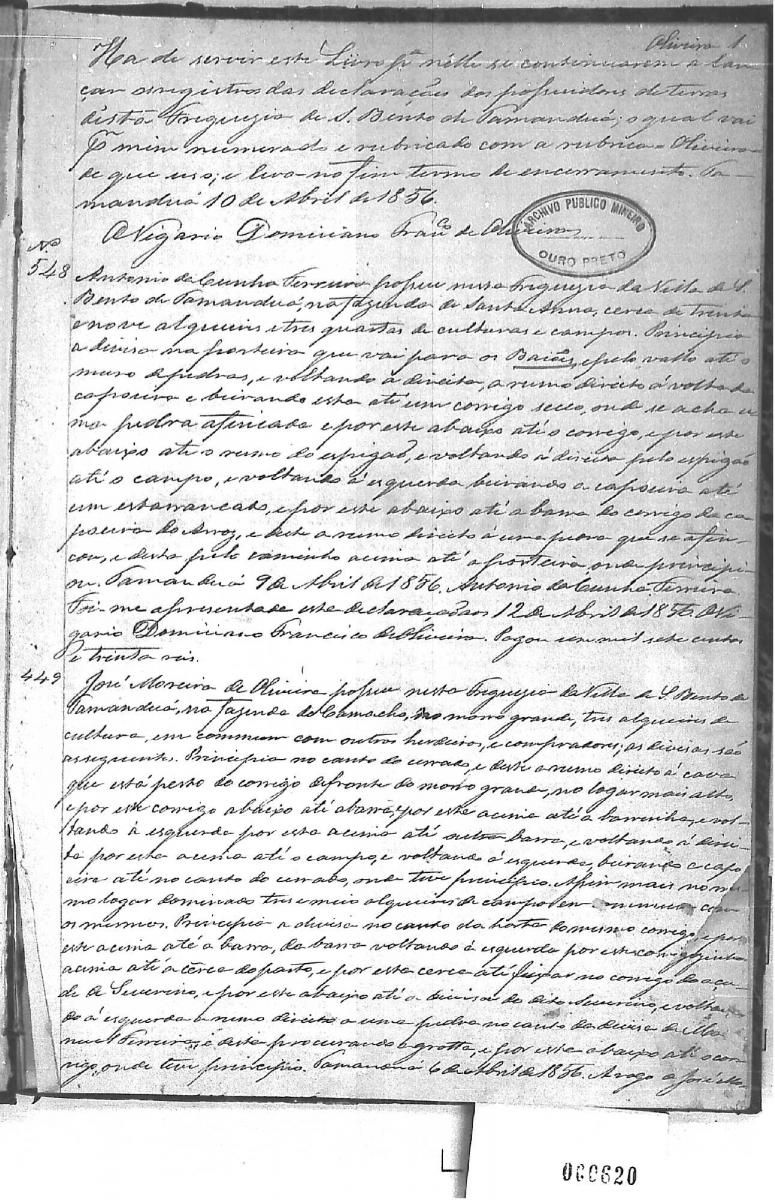 Oliveira 1
Ha de servir este Livro pª nelle se continuarem a lan-
çar os registros das declarações dos possuidores de terras
desta Freguezia de S. Bento de Tamanduá; o qual vai
pʳ mim numerado e rubricado com a rubrica Oliveira
de que uso; e leva no fim termo de encerramento. Ta-
manduá 10 de Abril de 1856.
O Vigario Domiciano Franᶜᵒ de Oliveira
ARCHIVO PUBLICO MINEIRO
OURO PRETO
Nº
548
Antonio da Cunha Ferreira possue nesta Freguezia da Villa de S.
Bento de Tamanduá, na fazenda de Santa Anna, cerca de trinta
e nove alqueires e tres quartas de culturas e campos. Principia
a divisa na porteira que vai para os Baiões, e pelo vallo até o
muro de pedras, e voltando á direita, a rumo direito á volta da
capoeira e beirando esta até um corrigo secco, onde se acha u-
ma pedra afincada e por este abaixo até o corrigo, e por este
abaixo até o rumo do espigão, e voltando á direita pelo espigão
até o campo, e voltando á esquerda beirando a capoeira até
um esbarrancado, e por este abaixo até a barra do corrigo da ca-
poeira do Arroz, e deste a rumo direito á uma que se afin-
cou, e desta pelo caminho acima até a porteira onde principi-
ou. Tamanduá 9 de Abril de 1856. Antonio da Cunha Ferreira
Foi-me apresentada esta declaração aos 12 de Abril de 1856. O Vi-
gario Domiciano Francisco de Oliveira. Pagou um mil sete centos
e trinta reis.
449
José Moreira de Oliveira possue nesta Freguezia da Villa de S. Bento de
Tamanduá, na fazenda do Camacho, no morro grande, tres alqueires de
cultura, em commum com outros herdeiros, e compradores; as divisas são
as seguintes. Principia no canto do cerrado, e deste a rumo direito á cava
que está perto do corrigo defronte do morro grande, no logar mais alto,
e por este corrigo abaixo até a barra, e por este acima até a barrinha, e vol-
tando á esquerda por esta acima até outra barra, e voltando á direi-
ta por esta acima até o campo, e voltando á esquerda, beirando a capo-
eira até no canto do cerrado, onde teve principio. Assim mais no mes-
mo logar dominado tres e meio alqueires de campo em commum com
os mesmos. Principia a divisa no canto da horta do mesmo corrigo, e por
este acima até a barra, da barra voltando á esquerda por este corriguinho
acima até a cerca do pasto, e por esta cerca até no corrigo do açu-
de de Severino, e por este abaixo até a divisa do dito Severino, e voltan-
do á esquerda a rumo direito a uma pedra no canto da divisa de Ma-
noel Ferreira, e desta procurando a grotta, e por esta abaixo até o cor-
rigo, onde teve principio. Tamanduá 6 de Abril de 1856. A rogo de José Mo-
000620